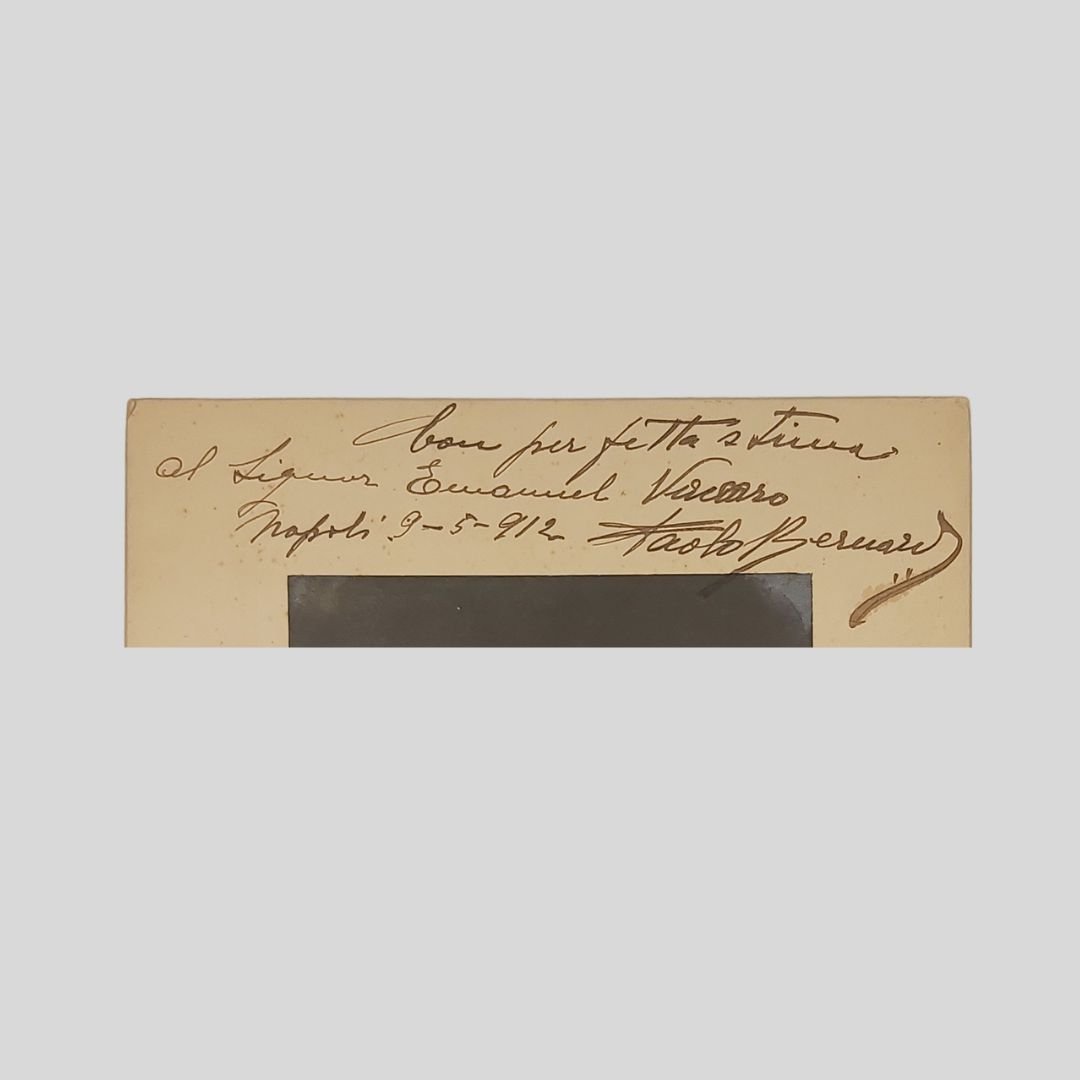 Con perfetta stima
al Signor Emanuel Vaccaro
Napoli 9-5-912 Paolo Bernardi